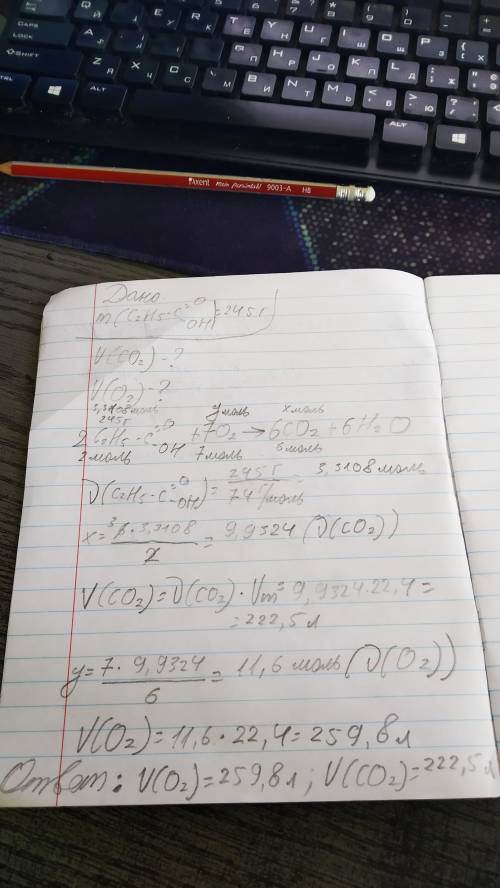 CAPS
SHIFT
CTRL
ALT
ALT
Axent 9003-A HB
Дано
m(C2H5-C=O OH)=245г
V(CO2)-?
V(O2)-?
3,3108моль y моль x моль
245г
2C2H5-C=O OH +7O2→6CO2+6H2O
2моль 7моль 6моль
ν(C2H5-C=O OH)=245г/74г/моль=3,3108моль
x=6·3,3108/2=9,9324(ν(CO2))
V(CO2)=ν(CO2)·Vm=9,9324·22,4=
=222,5л
y=7·9,9324/6=11,6моль(ν(O2))
V(O2)=11,6·22,4=259,8л
Ответ: V(O2)=259,8л; V(CO2)=222,5л